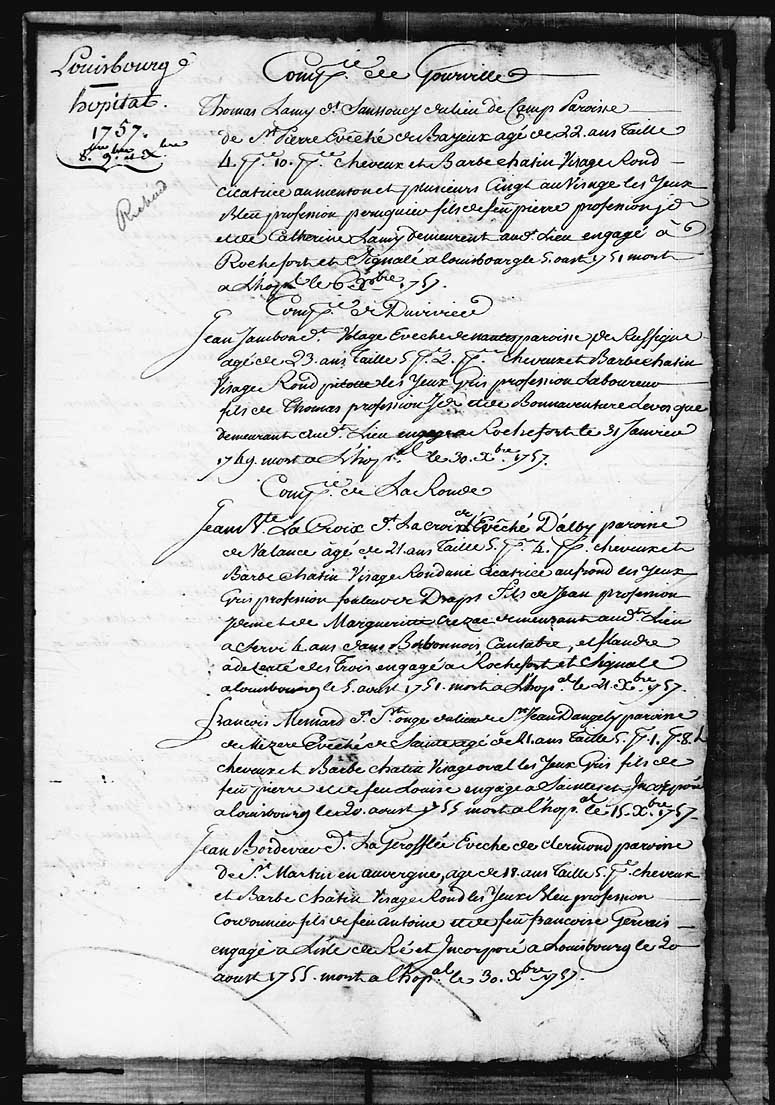 Louisbourg
hopital.
1757.
8.bre 9.bre et X.bre
Richard
Comp.ie de Gourville
Thomas Lamy d.t Sanssoucy du lieu de Camp Paroisse
de S.t Pierre Evêché de Bayeux agé de 22. ans Taille
4. p.ds 10. p.ces cheveux et Barbe chatin Visage Rond
cicatrice au menton et plusieurs Cingt au Visage les Yeux
Bleu profession peruquier fils de feu pierre profession j.d
et de Catherine Lamy demeurent aud. Lieu engagé à
Rochefort et Signalé a louisbourg le 5. aoust 1751 mort
a L'hop.l le 6 Xbre 1757.
Comp.ie de Duvivier
Jean Jambon d.t Volage Eveché de nantes paroisse de Ruffigné
agé de 23. ans Taille 5. p. 2. p. cheveux et Barbe chatin
Visage Rond les Yeux Gris profession Laboureur
fils de Thomas profession J.d et de Bonnaventure Levosque
demeurant aud.t Lieu engagé a Rochefort le 31 Janvier
1749. mort a L'hop.al le 30. X.bre 1757.
Comp.ie de La Ronde
Jean B.te La Croix d.t Lacroix Evêché D'alby paroisse
de Valance âgé de 21 ans Taille 5. p. 4. p. cheveux et
Barbe chatin Visage Rond une Cicatrice au frond les Yeux
Gris profession fouleur de Draps fils de Jean profession
Jdem et de Margueritte Crezac demeurant aud.t Lieu
a Servi 4 ans dans Bourbonnois Cantabre, et flandre
a dezerté des Trois engagé a Rochefort et Signalé
a louisbourg le 5. aoust 1751. mort a L'hop.al le 21. X.bre 1757.
francois Mesnard d.t S.tonge du lieu de S.t Jean Dangely paroisse
de Mezere Evêché de Sainte agé de 21. ans Taille 5. p. 1. p. 8. l
cheveux et Barbe chatin Visage oval les Yeux Gris fils de
feu pierre et de feu Louise engagé a Saintes et Jncorporé
a louisbourg le 20. aoust 1755 mort a l'hop.al le 15. X.bre 1757.
Jean Bordevere d.t La Gerofflée Eveché de clermond paroisse
de S.t Martin en auvergne, age de 18. ans Taille 5. p. cheveux
et Barbe chatin Visage Rond les Yeux Bleu profession
Cordonnier fils de feu antoine et de feu francoise Gervais
engagé a Lisle de Ré et Jncorporé a Louisbourg le 20
aoust 1755. mort a l'hop.al le 30. X.bre 1757.